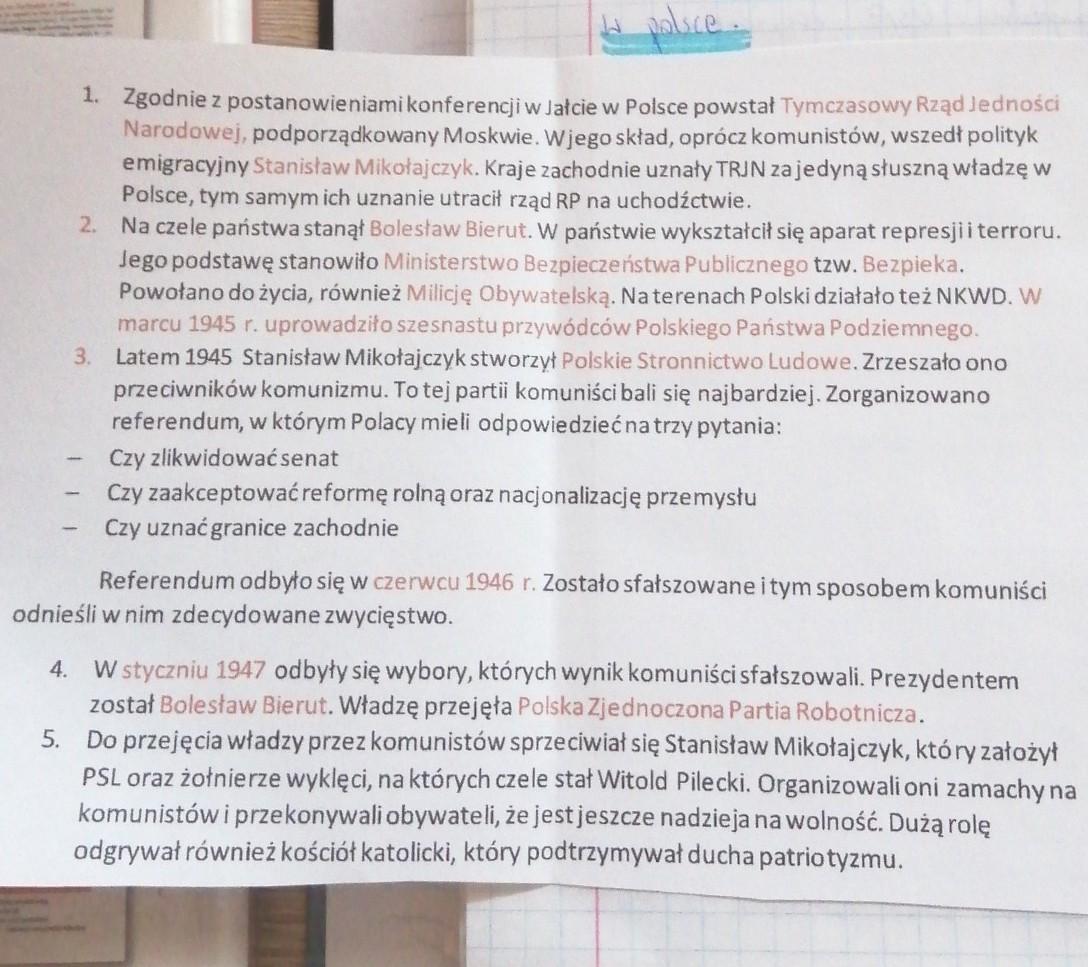 w polsce.
1. Zgodnie z postanowieniami konferencji w Jałcie w Polsce powstał Tymczasowy Rząd Jedności
Narodowej, podporządkowany Moskwie. W jego skład, oprócz komunistów, wszedł polityk
emigracyjny Stanisław Mikołajczyk. Kraje zachodnie uznały TRJN za jedyną słuszną władzę w
Polsce, tym samym ich uznanie utracił rząd RP na uchodźctwie.
2. Na czele państwa stanął Bolesław Bierut. W państwie wykształcił się aparat represji i terroru.
Jego podstawę stanowiło Ministerstwo Bezpieczeństwa Publicznego tzw. Bezpieka.
Powołano do życia, również Milicję Obywatelską. Na terenach Polski działało też NKWD. W
marcu 1945 r. uprowadziło szesnastu przywódców Polskiego Państwa Podziemnego.
3. Latem 1945 Stanisław Mikołajczyk stworzył Polskie Stronnictwo Ludowe. Zrzeszało ono
przeciwników komunizmu. To tej partii komuniści bali się najbardziej. Zorganizowano
referendum, w którym Polacy mieli odpowiedzieć na trzy pytania:
– Czy zlikwidować senat
– Czy zaakceptować reformę rolną oraz nacjonalizację przemysłu
– Czy uznać granice zachodnie
Referendum odbyło się w czerwcu 1946 r. Zostało sfałszowane i tym sposobem komuniści
odnieśli w nim zdecydowane zwycięstwo.
4. W styczniu 1947 odbyły się wybory, których wynik komuniści sfałszowali. Prezydentem
został Bolesław Bierut. Władzę przejęła Polska Zjednoczona Partia Robotnicza.
5. Do przejęcia władzy przez komunistów sprzeciwiał się Stanisław Mikołajczyk, który założył
PSL oraz żołnierze wyklęci, na których czele stał Witold Pilecki. Organizowali oni zamachy na
komunistów i przekonywali obywateli, że jest jeszcze nadzieja na wolność. Dużą rolę
odgrywał również kościół katolicki, który podtrzymywał ducha patriotyzmu.